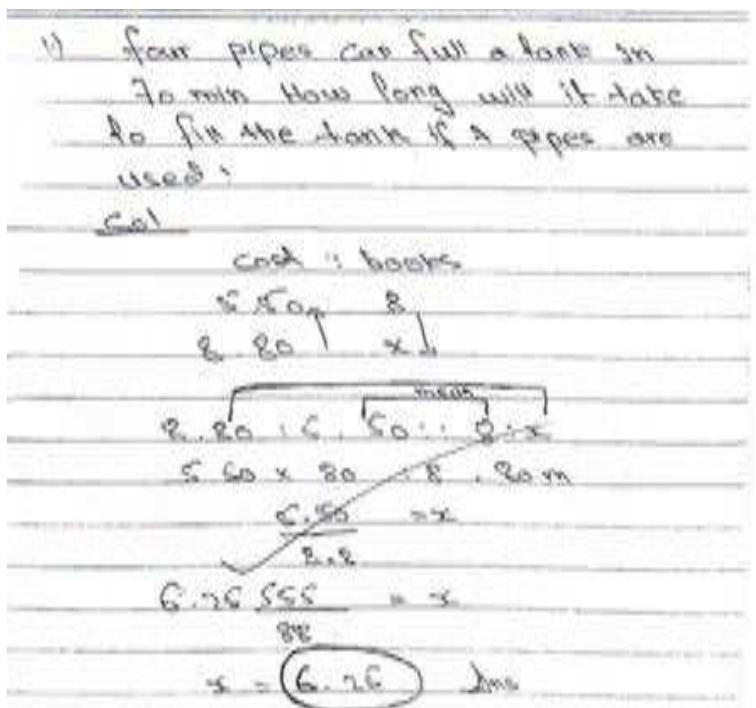 1) four pipes can full a tank in
70 min How long will it take
to fill the tank if 7 pipes are
used :
Sol
cost : books
5.50 8
8.80 x
mean
8.80 : 5.50 :: 8 : x
5.50 x 80 : 8 . 80 m
5.50 = x
8.8
6.25 555 = x
88
x = 6.25 Ans